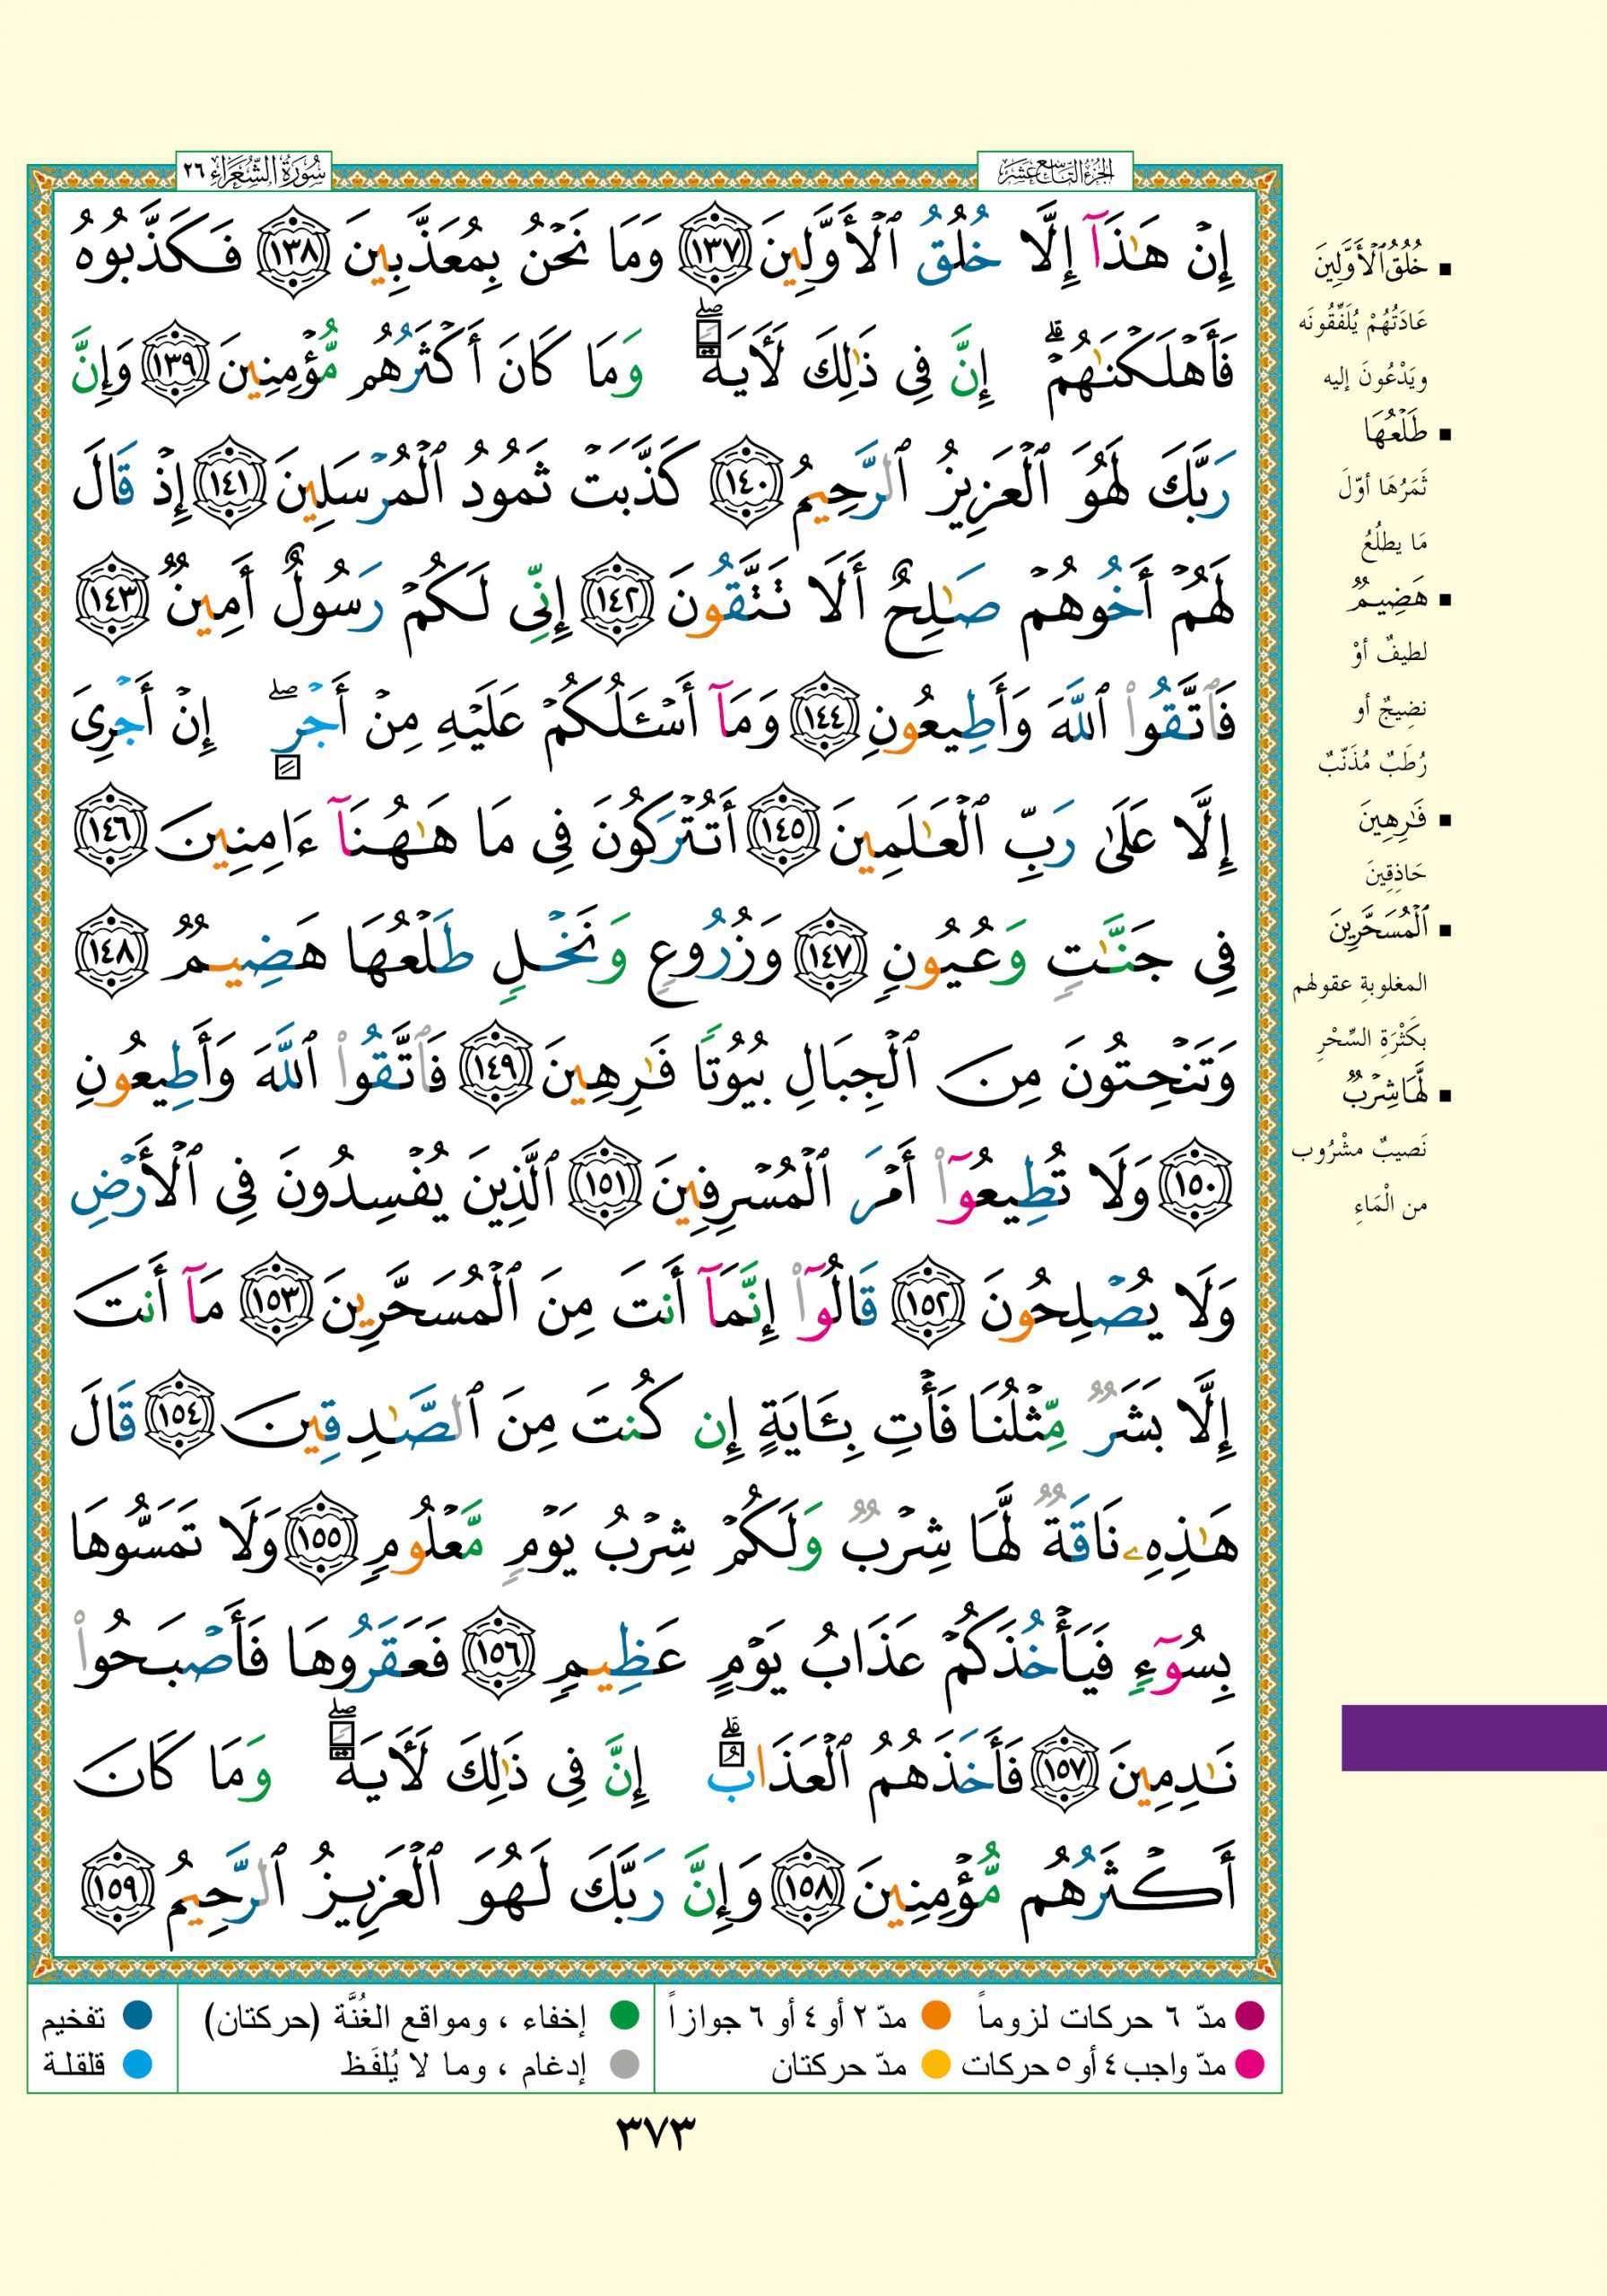 الجزء التاسع عشر
سُورَةُ الشُّعَرَاء ٢٦
إِنْ هَٰذَآ إِلَّا خُلُقُ ٱلْأَوَّلِينَ ١٣٧ وَمَا نَحْنُ بِمُعَذَّبِينَ ١٣٨ فَكَذَّبُوهُ
فَأَهْلَكْنَٰهُمْ ۗ إِنَّ فِى ذَٰلِكَ لَءَايَةً ۖ وَمَا كَانَ أَكْثَرُهُم مُّؤْمِنِينَ ١٣٩ وَإِنَّ
رَبَّكَ لَهُوَ ٱلْعَزِيزُ ٱلرَّحِيمُ ١٤٠ كَذَّبَتْ ثَمُودُ ٱلْمُرْسَلِينَ ١٤١ إِذْ قَالَ
لَهُمْ أَخُوهُمْ صَٰلِحٌ أَلَا تَتَّقُونَ ١٤٢ إِنِّى لَكُمْ رَسُولٌ أَمِينٌ ١٤٣
فَٱتَّقُوا۟ ٱللَّهَ وَأَطِيعُونِ ١٤٤ وَمَآ أَسْـَٔلُكُمْ عَلَيْهِ مِنْ أَجْرٍ ۖ إِنْ أَجْرِىَ
إِلَّا عَلَىٰ رَبِّ ٱلْعَٰلَمِينَ ١٤٥ أَتُتْرَكُونَ فِى مَا هَٰهُنَآ ءَامِنِينَ ١٤٦
فِى جَنَّٰتٍ وَعُيُونٍ ١٤٧ وَزُرُوعٍ وَنَخْلٍ طَلْعُهَا هَضِيمٌ ١٤٨
وَتَنْحِتُونَ مِنَ ٱلْجِبَالِ بُيُوتًا فَٰرِهِينَ ١٤٩ فَٱتَّقُوا۟ ٱللَّهَ وَأَطِيعُونِ
١٥٠ وَلَا تُطِيعُوٓا۟ أَمْرَ ٱلْمُسْرِفِينَ ١٥١ ٱلَّذِينَ يُفْسِدُونَ فِى ٱلْأَرْضِ
وَلَا يُصْلِحُونَ ١٥٢ قَالُوٓا۟ إِنَّمَآ أَنتَ مِنَ ٱلْمُسَحَّرِينَ ١٥٣ مَآ أَنتَ
إِلَّا بَشَرٌ مِّثْلُنَا فَأْتِ بِـَٔايَةٍ إِن كُنتَ مِنَ ٱلصَّٰدِقِينَ ١٥٤ قَالَ
هَٰذِهِۦ نَاقَةٌ لَّهَا شِرْبٌ وَلَكُمْ شِرْبُ يَوْمٍ مَّعْلُومٍ ١٥٥ وَلَا تَمَسُّوهَا
بِسُوٓءٍ فَيَأْخُذَكُمْ عَذَابُ يَوْمٍ عَظِيمٍ ١٥٦ فَعَقَرُوهَا فَأَصْبَحُوا۟
نَٰدِمِينَ ١٥٧ فَأَخَذَهُمُ ٱلْعَذَابُ ۗ إِنَّ فِى ذَٰلِكَ لَءَايَةً ۖ وَمَا كَانَ
أَكْثَرُهُم مُّؤْمِنِينَ ١٥٨ وَإِنَّ رَبَّكَ لَهُوَ ٱلْعَزِيزُ ٱلرَّحِيمُ ١٥٩
خُلُقُ ٱلْأَوَّلِينَ
عَادَتُهُمْ يُلَفِّقُونَه
ويَدْعُونَ إليه
طَلْعُهَا
ثَمَرُهَا أوّلَ
مَا يطلُعُ
هَضِيمٌ
لطيفٌ أوْ
نضِيجٌ أو
رُطَبٌ مُذَنّبٌ
فَٰرِهِينَ
حَاذِقِينَ
ٱلْمُسَحَّرِينَ
المغلوبةِ عقولهم
بكَثْرَةِ السِّحْرِ
لَّهَا شِرْبٌ
نَصيبٌ مشْرُوب
من الْمَاءِ
مدّ ٦ حركات لزوماً
مدّ ٢ أو ٤ أو ٦ جوازاً
إخفاء ، ومواقع الغُنَّة (حركتان)
تفخيم
مدّ واجب ٤ أو ٥ حركات
مدّ حركتان
إدغام ، وما لا يُلفَظ
قلقلة
٣٧٣